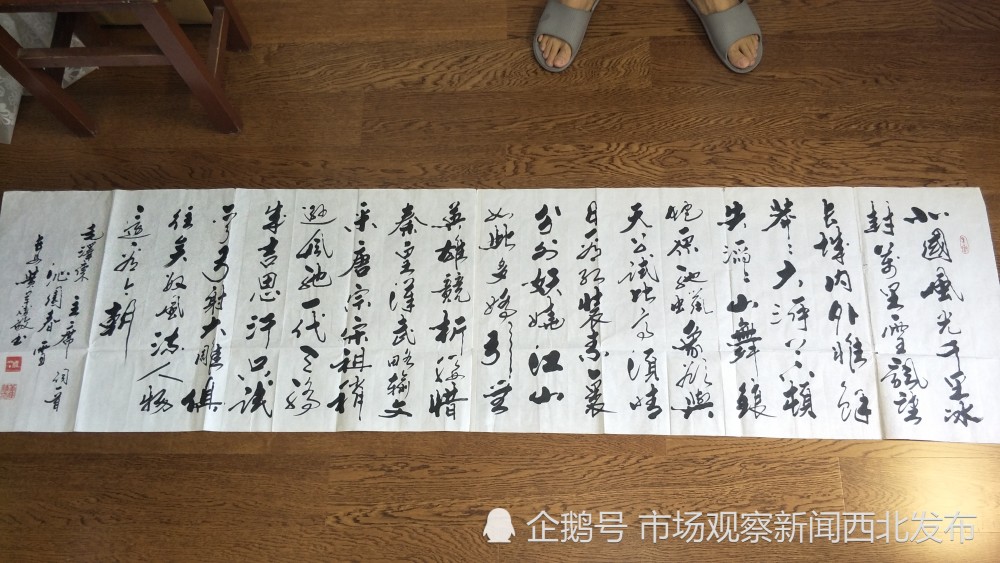 北國風光千里冰
封萬里雪飄望
长城内外惟餘
莽〻大河上下頓
失滔〻山舞銀
蛇原馳蠟象欲與
天公試比高須晴
日看红裝素裹
分外妖嬈江山
如此多嬌引無
英雄競折腰惜
秦皇漢武略輸文
采唐宗宋祖稍
遜風騷一代天骄
成吉思汗只識
彎弓射大雕俱
往矣数風流人物
還看今朝
毛澤東主席
沁園春雪词首
敏书
企鹅号 市场观察新闻西北发布